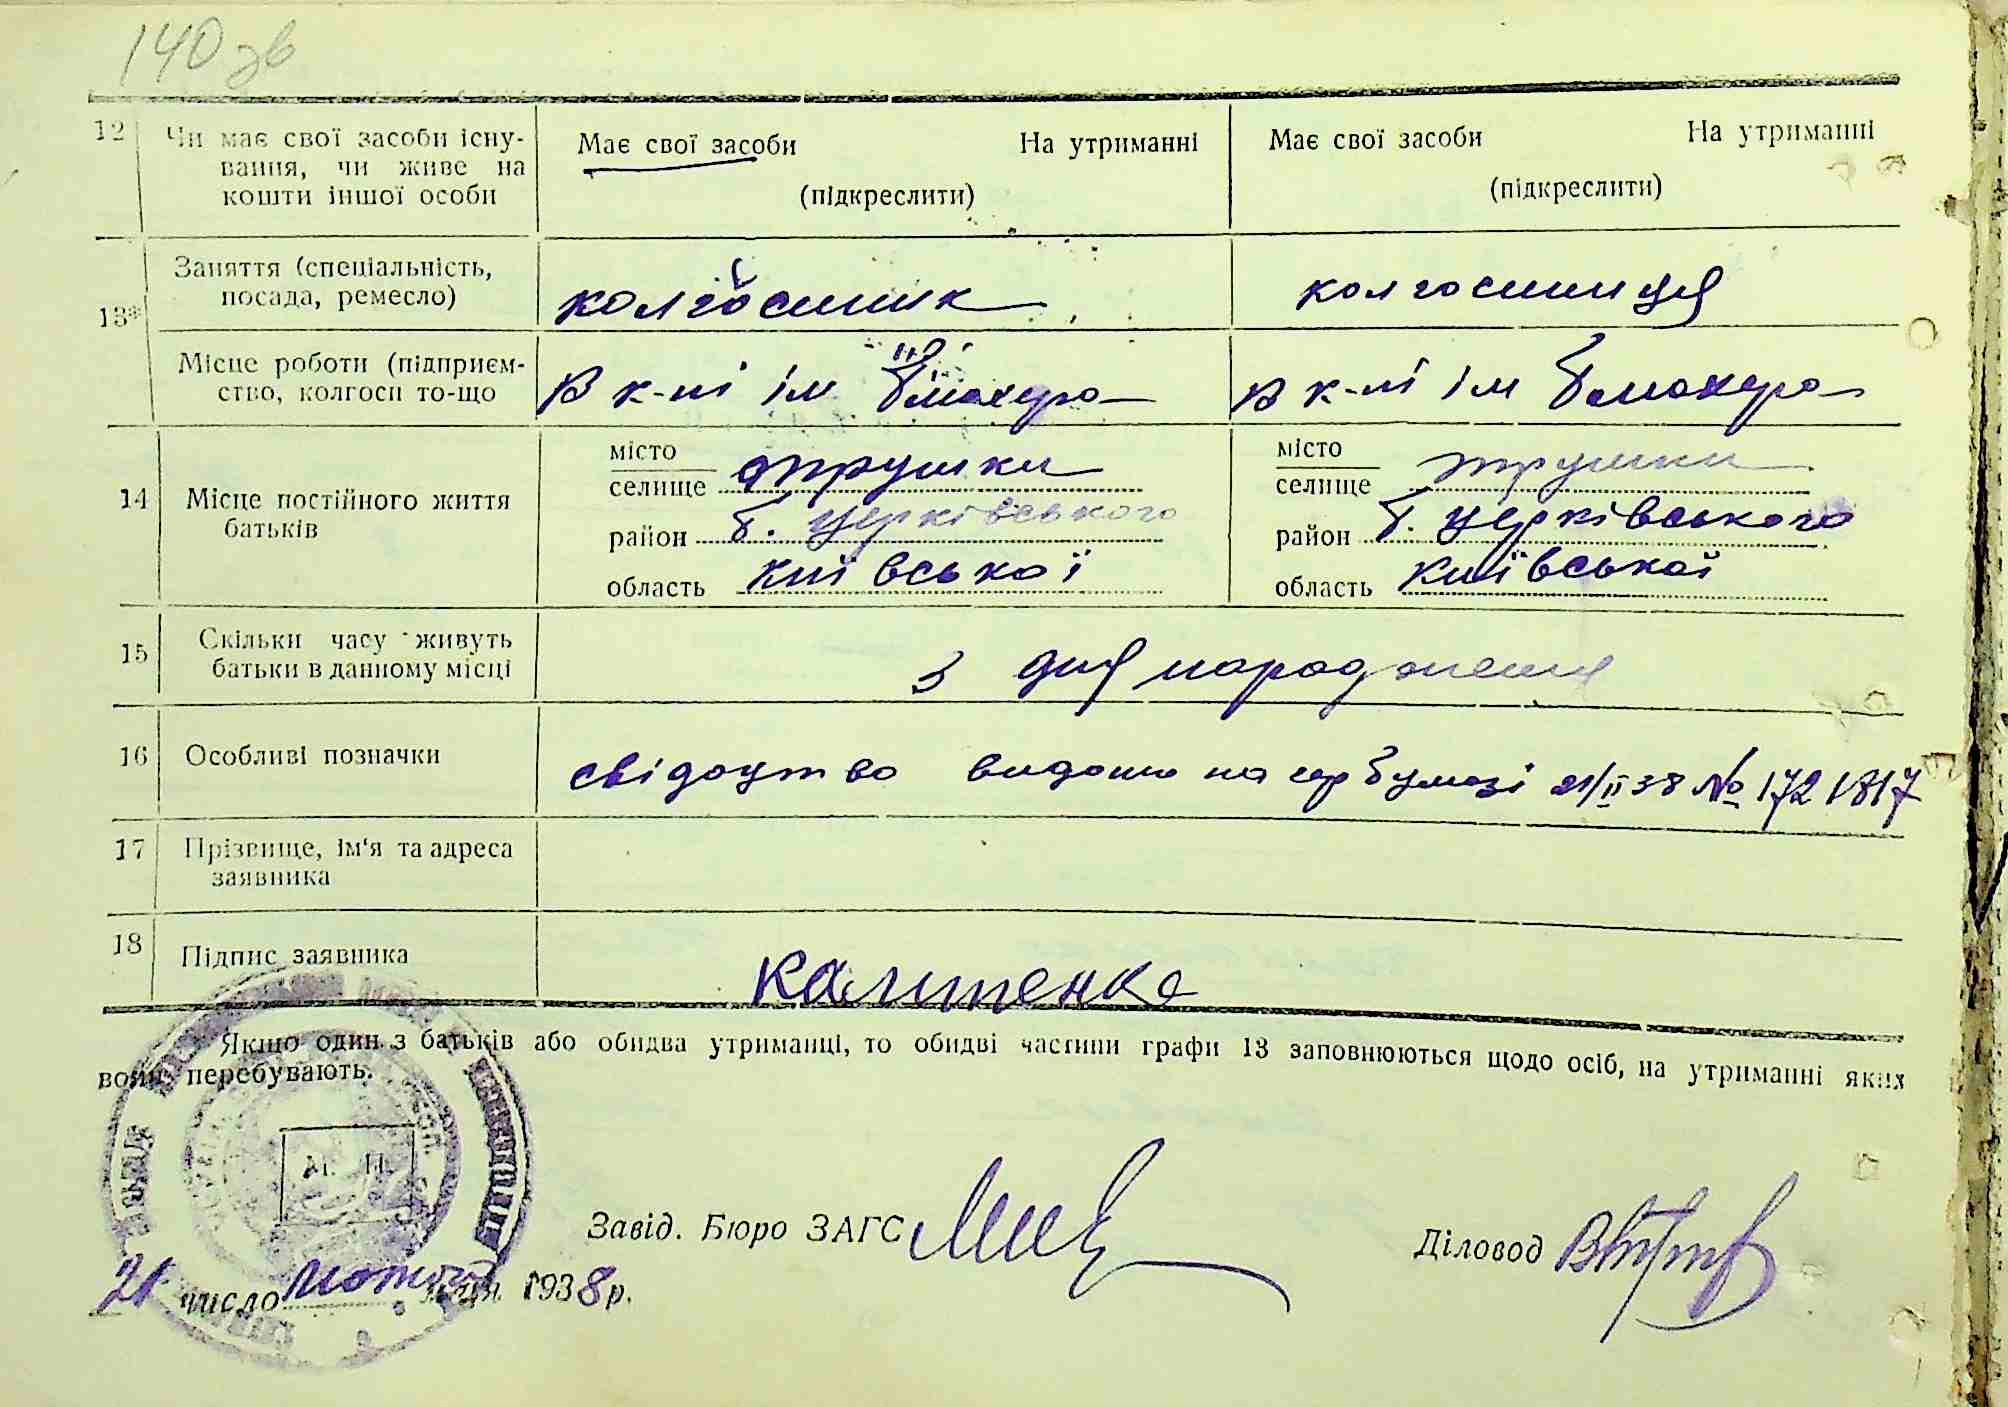 140 зв
12 Чи має свої засоби існу-
вання, чи живе на
кошти іншої особи
Має свої засоби На утриманні
(підкреслити)
Має свої засоби На утриманні
(підкреслити)
13* Заняття (спеціальність,
посада, ремесло)
колгоспник
колгоспниця
Місце роботи (підприєм-
ство, колгосп то-що
В к-пі ім
В к-пі ім
14 Місце постійного життя
батьків
місто
селище Трушки
район б. церківського
область київської
місто
селище трушки
район б. церківського
область київської
15 Скільки часу живуть
батьки в данному місці
з дня народження
16 Особливі позначки
свідоцтво видано на гербумазі 21/II 38 № 1721817
17 Прізвище, ім'я та адреса
заявника
18 Підпис заявника
Калитенко
Якщо один з батьків або обидва утриманці, то обидві частини графи 13 заповнюються щодо осіб, на утриманні яких
вони перебувають.
М. П.
Завід. Бюро ЗАГС
Діловод
21 число лютого м-ця 1938 р.